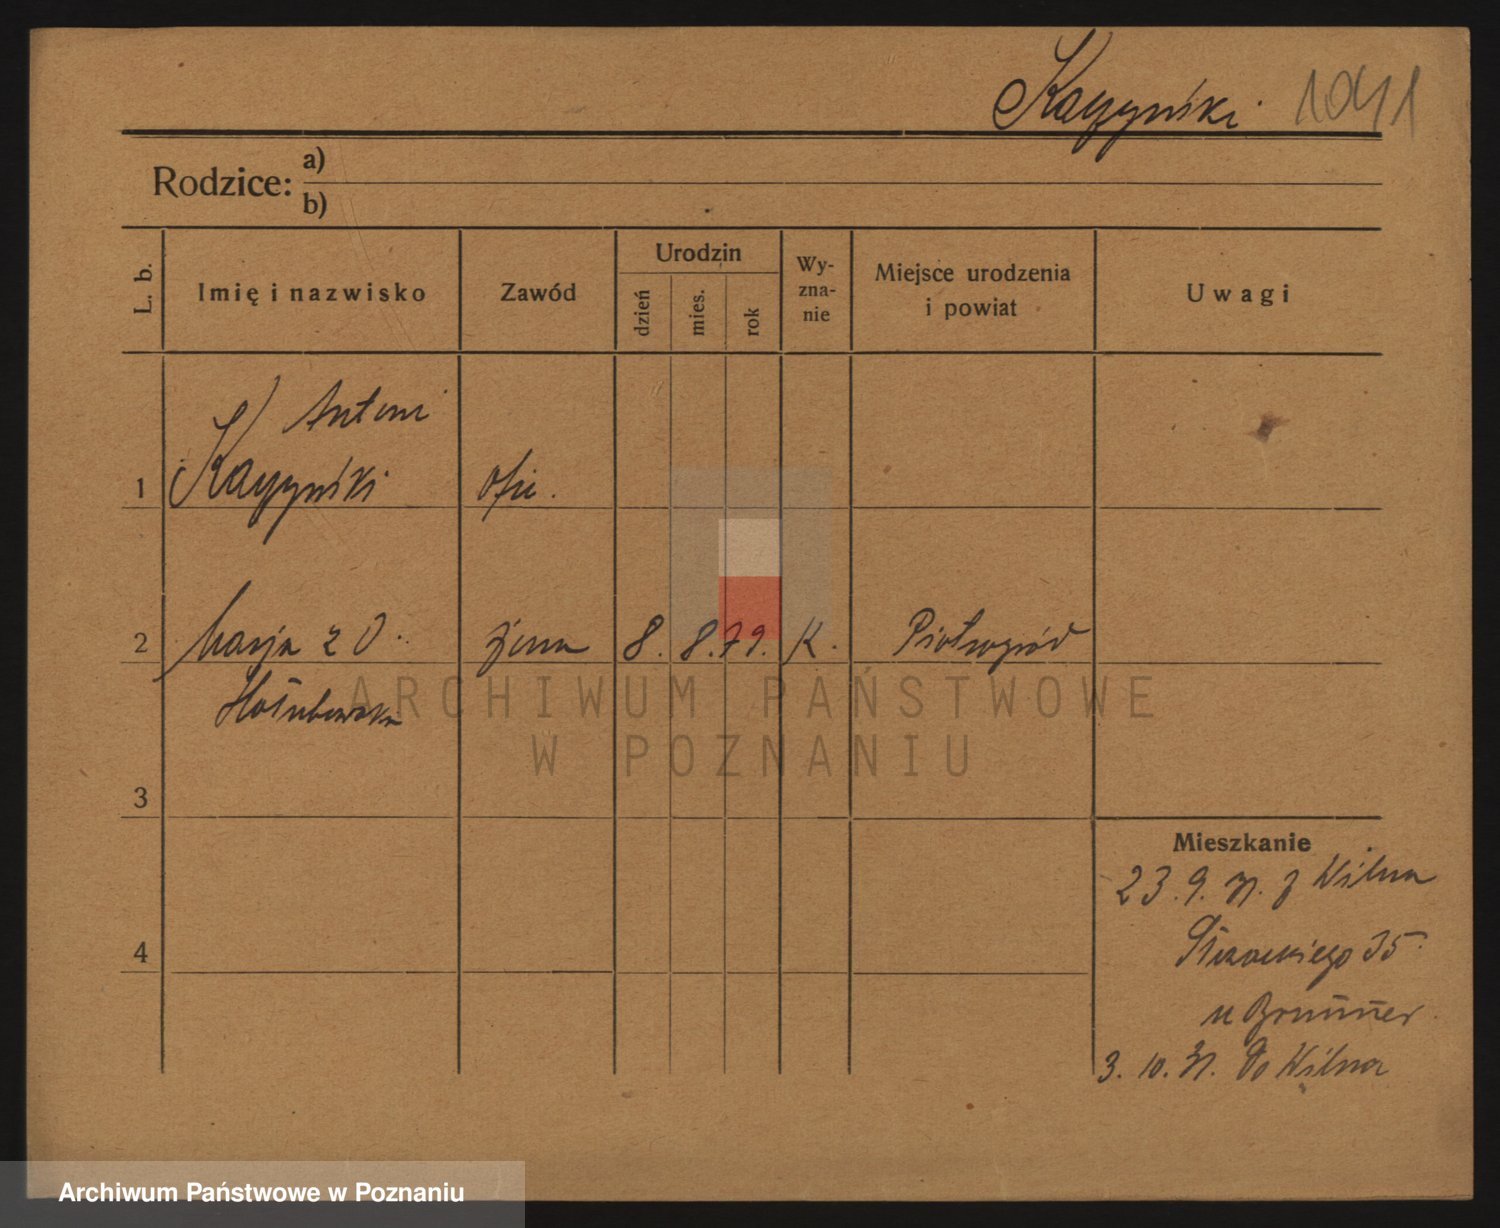 Kaczyński 1041
Rodzice: a)
b)
L. b.
Imię i nazwisko
Zawód
Urodzin
dzień
mies.
rok
Wy-
zna-
nie
Miejsce urodzenia
i powiat
Uwagi
Antoni
1 Kaczyński ofic.
2 Marja z D. żona 8. 8. 79. K. Piotrogród
Hołubowska
3
4
Mieszkanie
23. 9. 31. z Wilna
35
u Brunner
3. 10. 31. do Wilna
ARCHIWUM PAŃSTWOWE
W POZNANIU
Archiwum Państwowe w Poznaniu